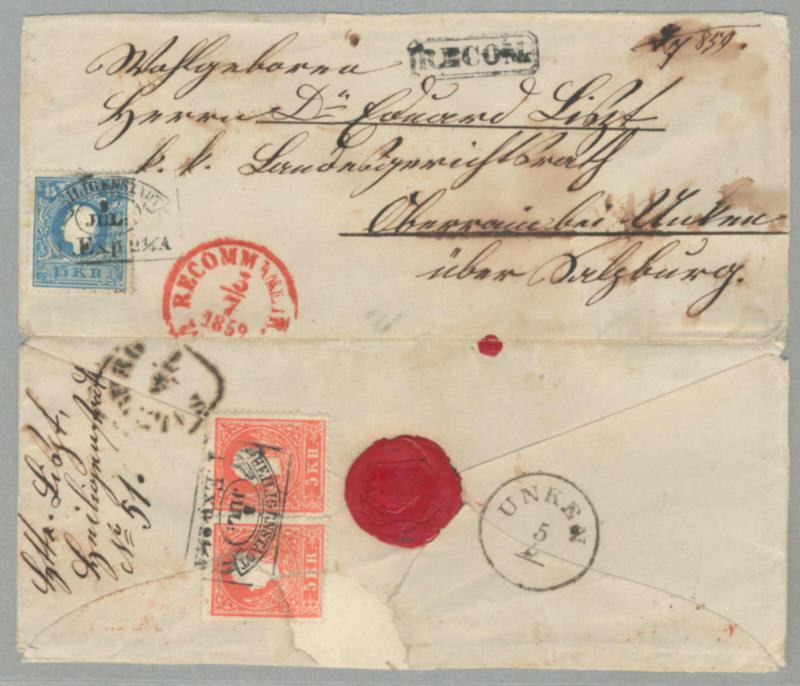 RECOM.
859.
Wohlgeboren
Herrn Dr. Eduard Liszt
k. k. Landesgerichtsrath
Oberrain bei Unken
über Salzburg.
15 KR
HEILIGENSTADT
JUL.
Exp
RECOMMANDIRT
1859
Liszt,
Heiligenstadt
No 51.
5 KR
HEILIGENSTADT
JUL.
5 KR
UNKEN
5